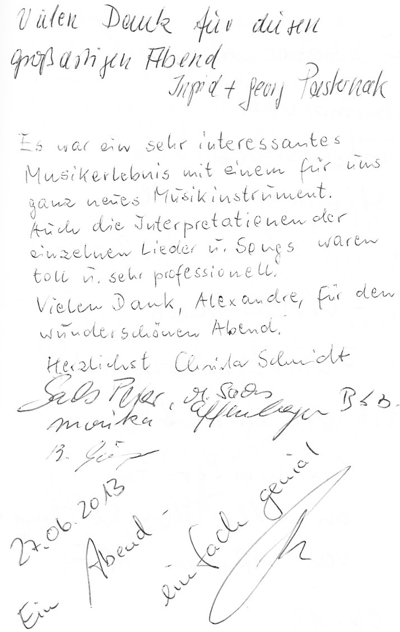 Vielen Dank für diesen
großartigen Abend
Ingrid + Georg Pasternak
Es war ein sehr interessantes
Musikerlebnis mit einem für uns
ganz neues Musikinstrument.
Auch die Interpretationen der
einzelnen Lieder u. Songs waren
toll u. sehr professionell.
Vielen Dank, Alexandre, für den
wunderschönen Abend.
Herzlichst Christa Schmidt
Monika
B.
27.06.2013
Ein Abend -
einfach genial